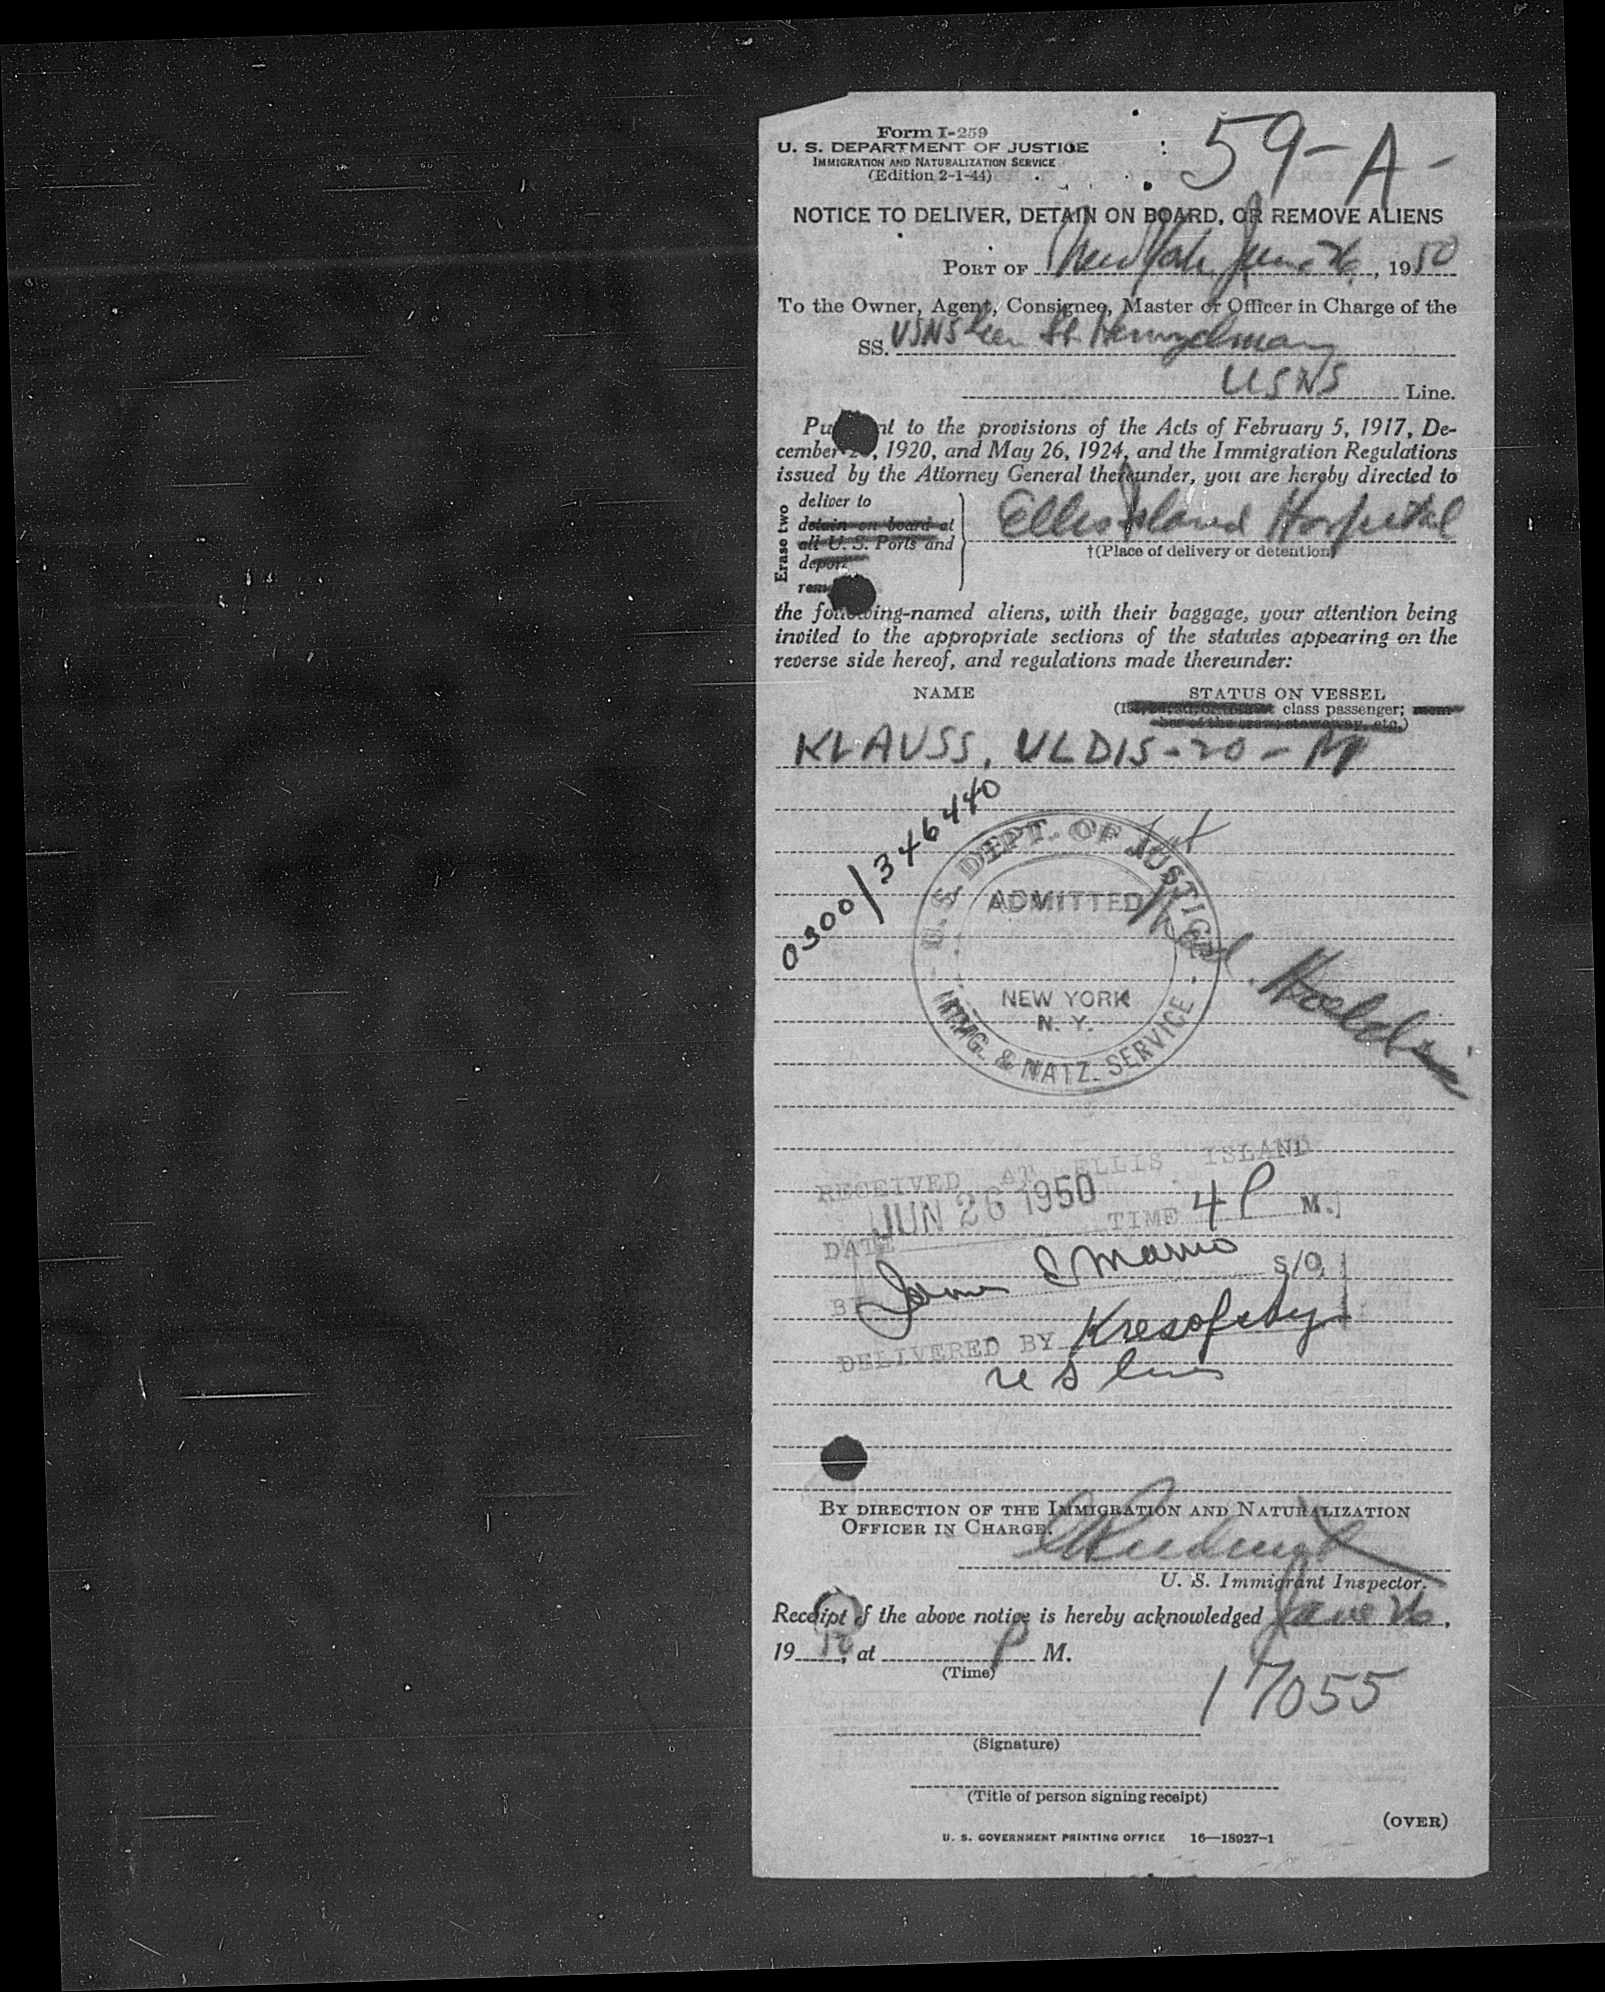 Form I-259
U. S. DEPARTMENT OF JUSTICE
IMMIGRATION AND NATURALIZATION SERVICE
(Edition 2-1-44)
59-A-
NOTICE TO DELIVER, DETAIN ON BOARD, OR REMOVE ALIENS
PORT OF New York, June 26, 1950
To the Owner, Agent, Consignee, Master or Officer in Charge of the
SS. USNS Gen St. Heinzelman
USNS Line.
Pu nt to the provisions of the Acts of February 5, 1917, De-
cember 26, 1920, and May 26, 1924, and the Immigration Regulations
issued by the Attorney General thereunder, you are hereby directed to
Erase two
deliver to
detain on board at
all U. S. Ports and
deport
rem
Ellis Island Hospital
†(Place of delivery or detention)
the following-named aliens, with their baggage, your attention being
invited to the appropriate sections of the statutes appearing on the
reverse side hereof, and regulations made thereunder:
NAME STATUS ON VESSEL
class passenger; mem-
ber of the crew; stowaway, etc.)
KLAUSS, ULDIS-20-M
0300/346440
U. S. DEPT. OF JUSTICE
ADMITTED
NEW YORK
N. Y.
IMMG. & NATZ. SERVICE
RECEIVED AT ELLIS ISLAND
DATE JUN 26 1950 TIME 4 P M.
BY James S/O
DELIVERED BY
U S Lines
BY DIRECTION OF THE IMMIGRATION AND NATURALIZATION
OFFICER IN CHARGE.
U. S. Immigrant Inspector.
Receipt of the above notice is hereby acknowledged June 26,
19 50, at P M.
(Time)
17055
(Signature)
(Title of person signing receipt)
(OVER)
U. S. GOVERNMENT PRINTING OFFICE 16—18927-1